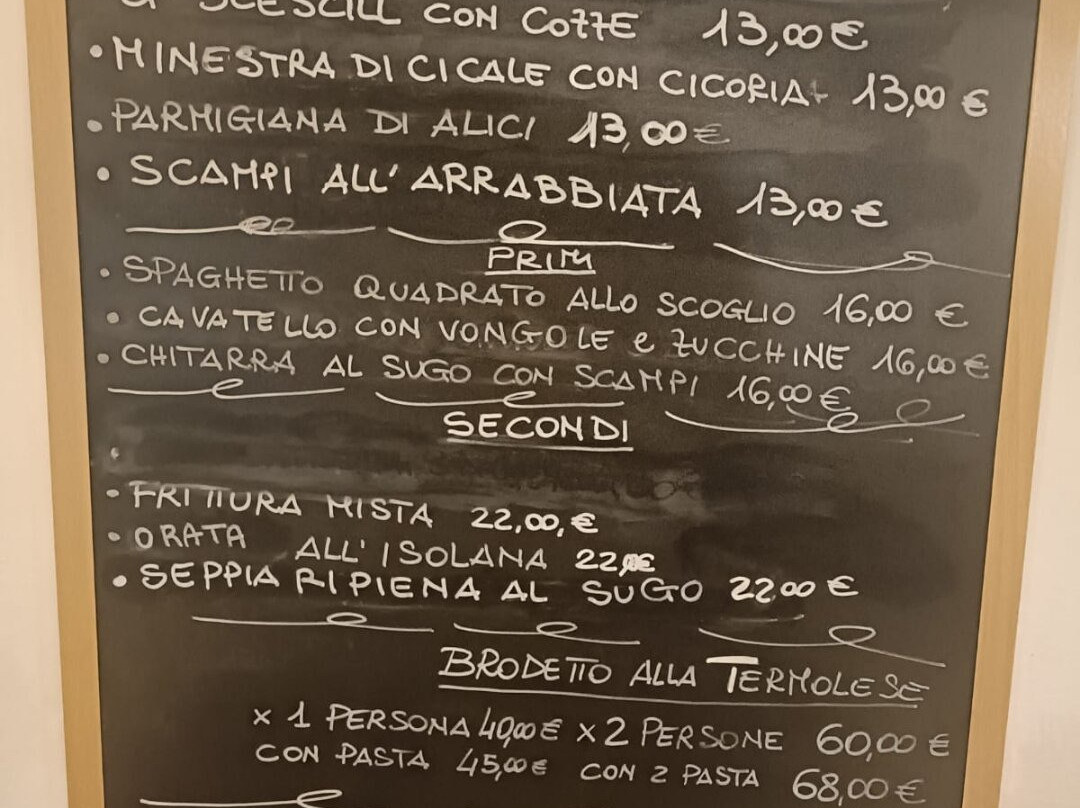 SCESCILL CON COZZE 13,00 €
• MINESTRA DI CICALE CON CICORIA 13,00 €
• PARMIGIANA DI ALICI 13,00 €
• SCAMPI ALL'ARRABBIATA 13,00 €
PRIMI
• SPAGHETTO QUADRATO ALLO SCOGLIO 16,00 €
• CAVATELLO CON VONGOLE e ZUCCHINE 16,00 €
• CHITARRA AL SUGO CON SCAMPI 16,00 €
SECONDI
- FRITTURA MISTA 22,00,€
• ORATA ALL'ISOLANA 22,00€
• SEPPIA RIPIENA AL SUGO 22.00 €
BRODETTO ALLA TERMOLESE
× 1 PERSONA 40,00€ × 2 PERSONE 60,00 €
CON PASTA 45,00€ CON 2 PASTA 68,00 €